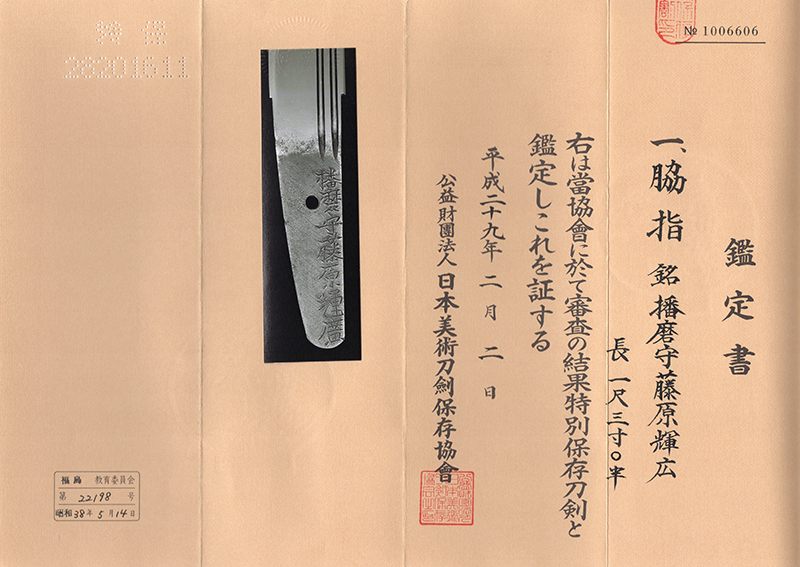 № 1006606
鑑定書
一、脇指 銘 播磨守藤原輝広
長 一尺三寸〇半
右は當協會に於て審査の結果特別保存刀剣と
鑑定しこれを証する
平成二十九年二月二日
公益財團法人 日本美術刀劍保存協會
播磨守藤原輝廣
28201611
福島 教育委員会
第 22198 号
昭和38年5月14日